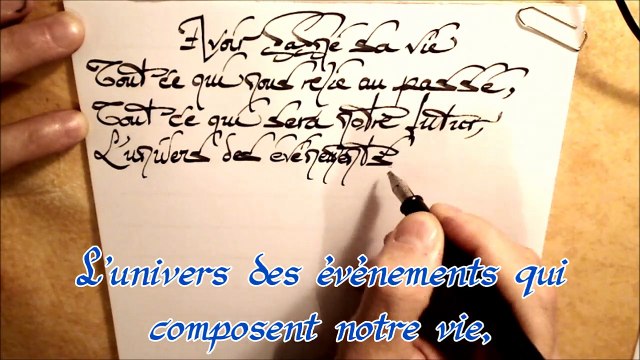 Avoir gagné sa vie
Tout ce qui nous relie au passé,
Tout ce qui sera notre futur,
L'univers des événements
L'univers des événements qui
composent notre vie,